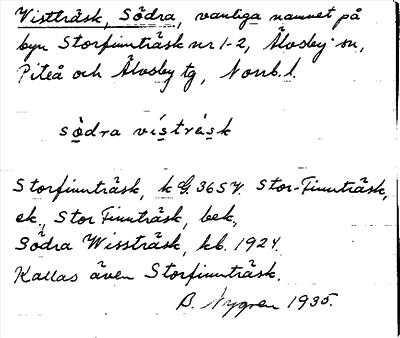 Vistträsk, Södra, vanliga namnet på
byn Storfinnträsk nr 1-2, Älvsby sn,
Piteå och Älvsby tg, Norrb. l.
södra vísträsk
Storfinnträsk, k G. 365 V. Stor-Finnträsk,
ek., Stor Finnträsk, bek,
Södra Wissträsk, kb. 1924.
Kallas även Storfinnträsk.
B. Nygren 1935.